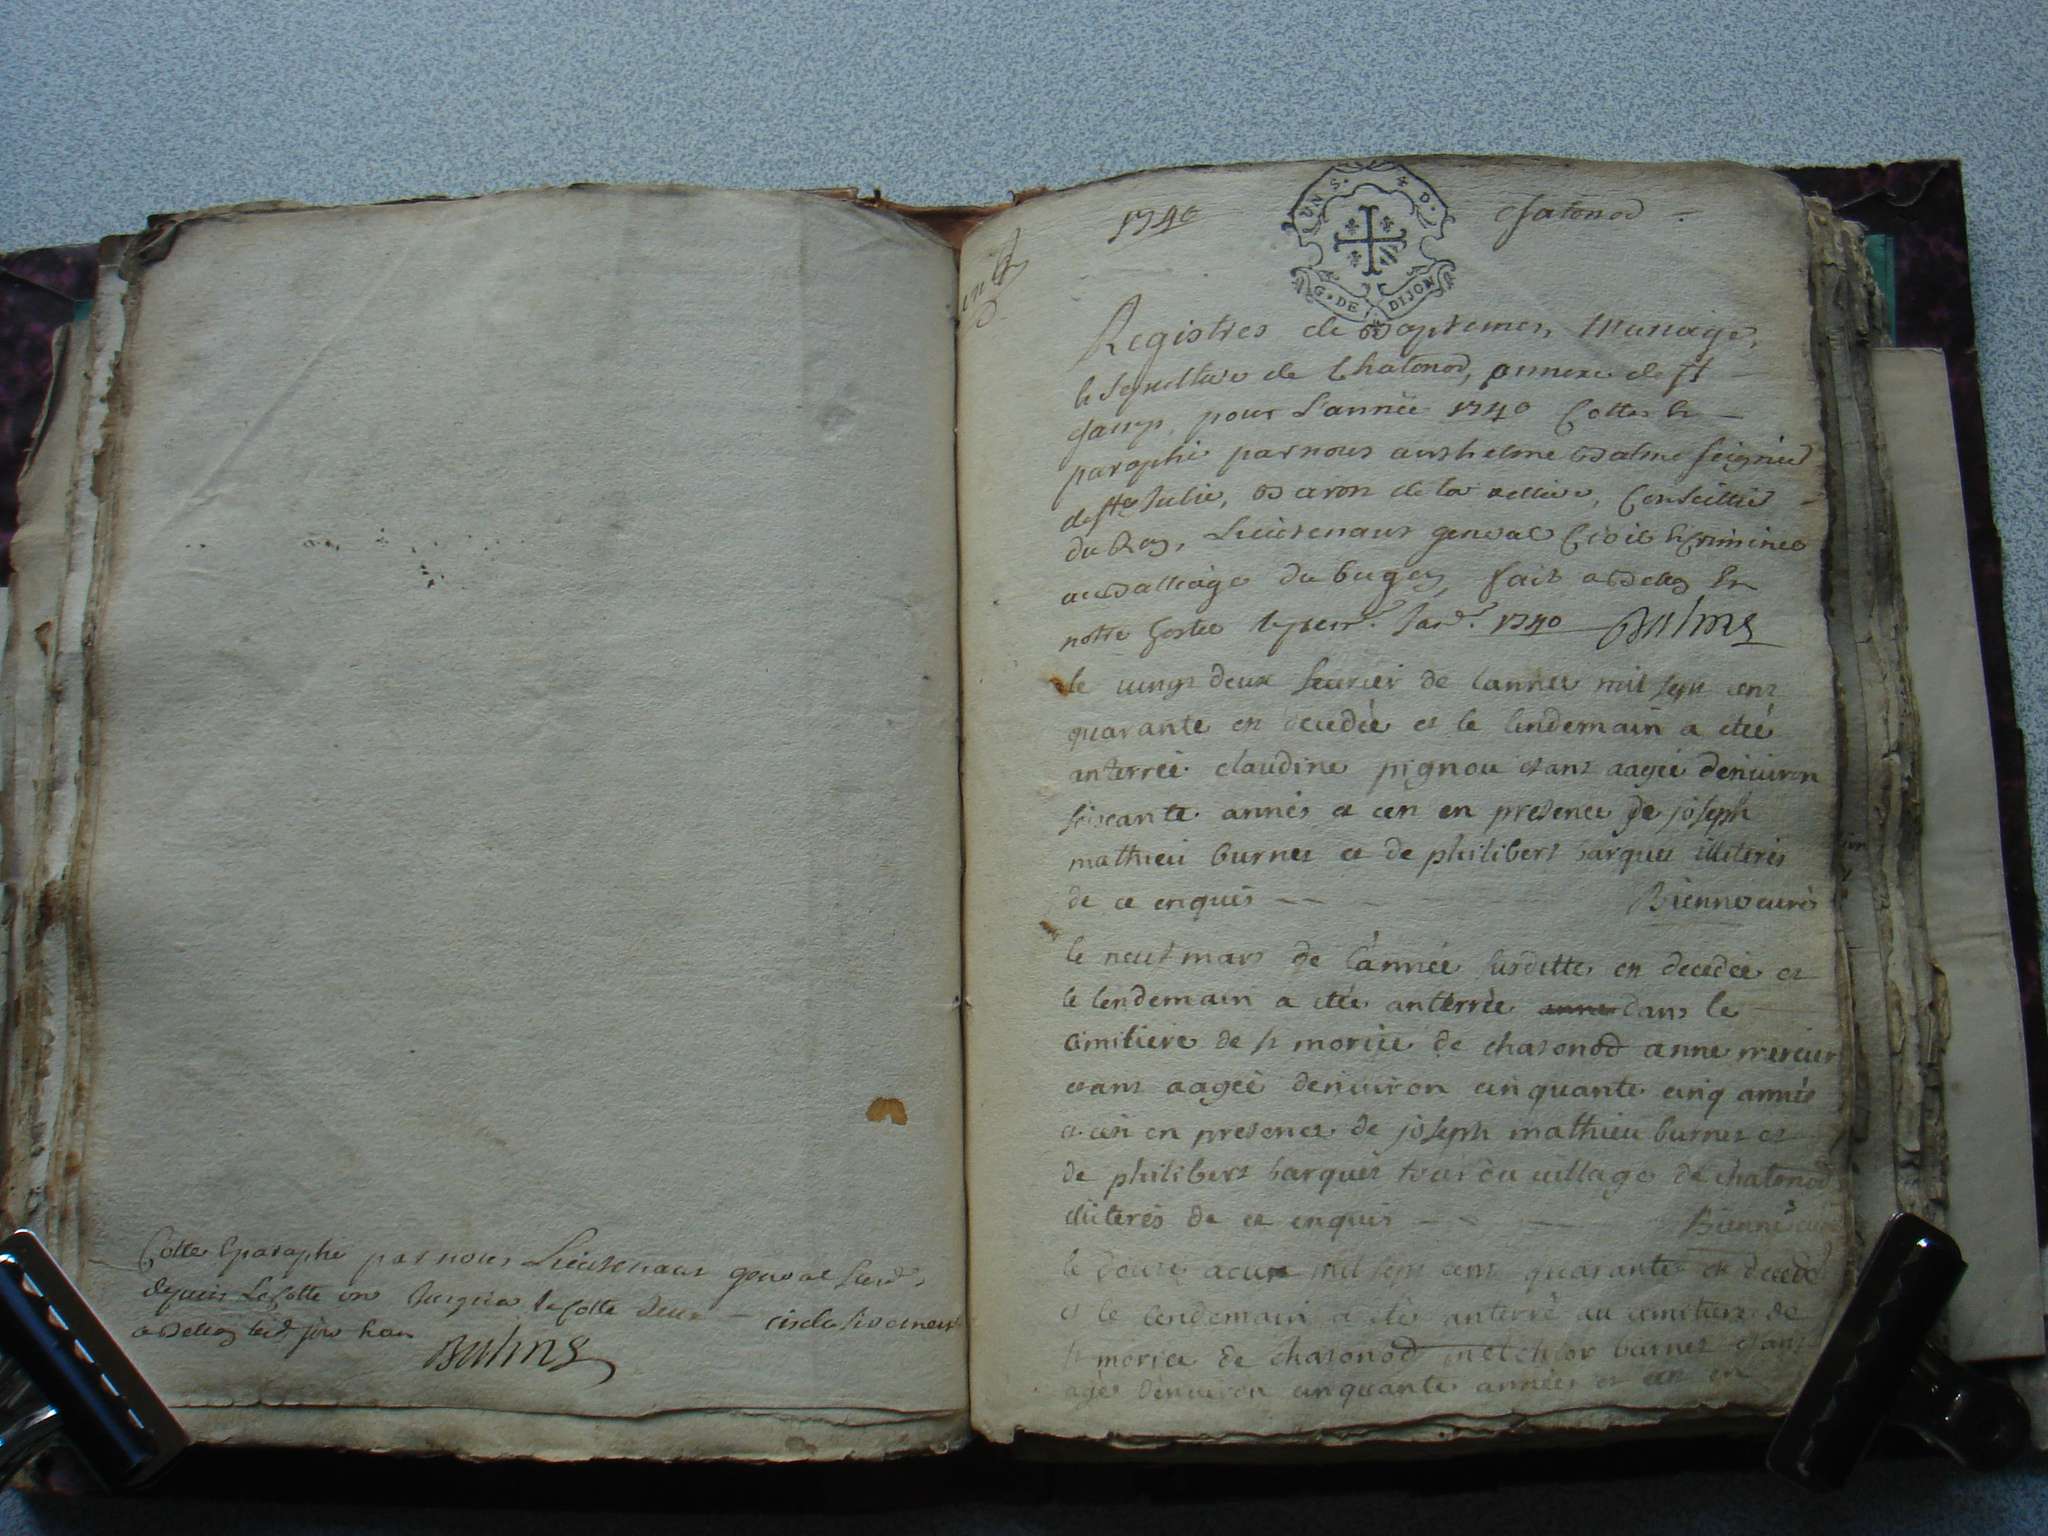 Cotte & paraphé par nous Lieutenant general susd.
depuis la Cotte un Jusqu'a la Cotte deux — inclusivement
a Belley led. jour & an
Balme
un
1740
UN S. 4 D.
G. DE DIJON
Chatonod
Registres de Baptemes, Mariage,
& Sepulture de Chatonod, annexe de st
champ, pour L'année 1740 Cotte &
paraphé par nous anthelme Balme seignieur
de ste Julie, Baron de la, Conseiller
du Roy, Lieutenant general Civil & Criminel
au Balliage du bugey, fait a Belley En
notre hostel le prem.r Janv.r 1740 Balme
le vingt deux feurier de lannee mil sept cent
quarante est decedée et le lendemain a etée
anterrée claudine pignou etant aagée denuiron
soixante annés et cen en presence de joseph
mathieu burnet et de philibert barquet illiterés
de ce enquis — — Bienne curé
le neuf mars de l'année susditte est decedée et
le lendemain a etée anterrée anne dans le
cimitiere de st morice de chatonod anne mercier
etant aagée denuiron cinquante cinq annés
et cen en presence de joseph mathieu burnet et
de philibert barquet tous du village de chatonod
illiterés de ce enquis — — Bienne curé
le douze mil sept cent quarante est decedé
et le lendemain a eté anterré au cimitiere de
st morice de chatonod melchior burnet etant
agé denuiron cinquante années et cen en